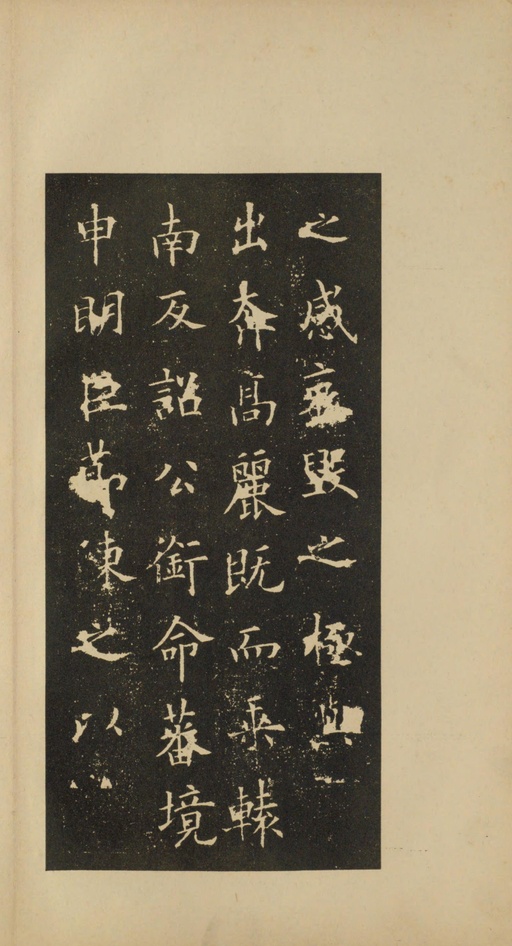 之感哀毀之極
出奔高麗既而乗轅
南反詔公銜命蕃境
申明臣節陳之以